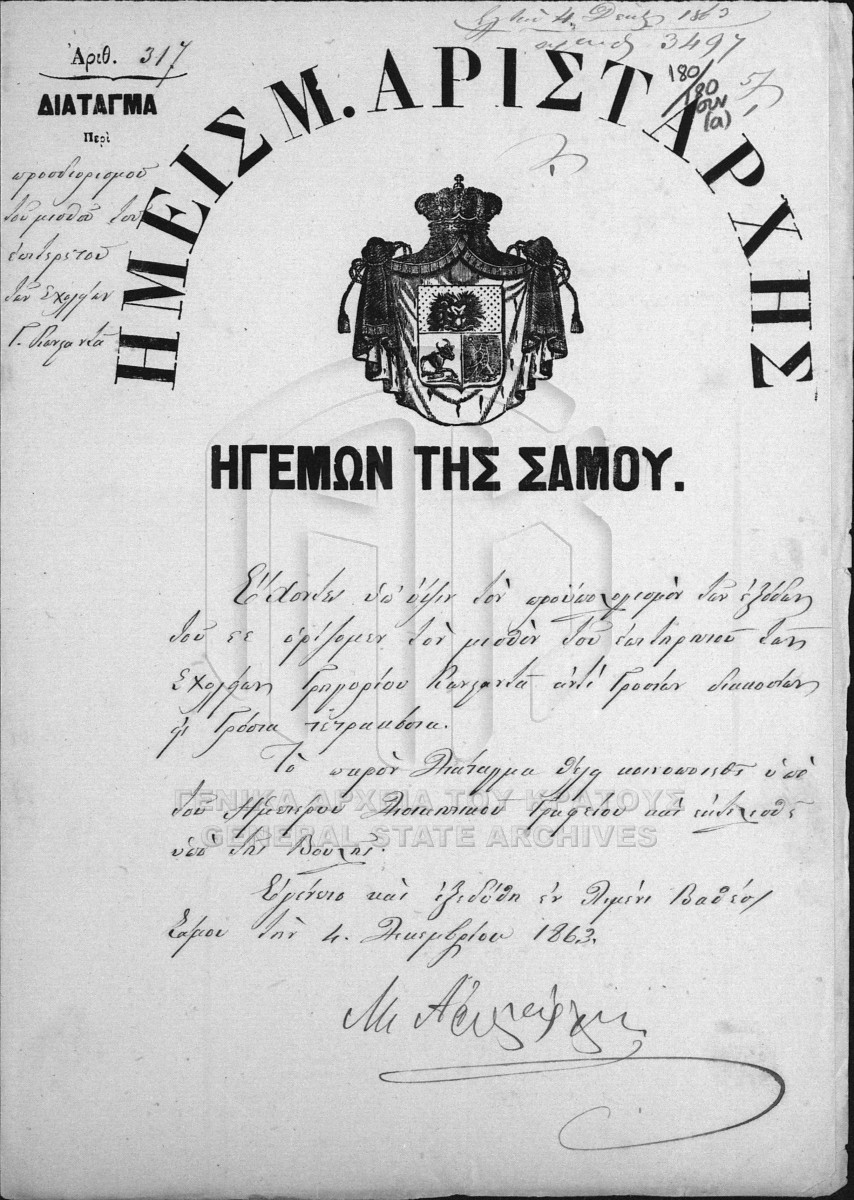 Ἀριθ. 317
ΔΙΑΤΑΓΜΑ
Περὶ
προσδιορισμοῦ
τοῦ μισθοῦ τοῦ
τῶν Σχολείων
Γ.
Δεκ. 1863
3497
180/
180
συν
(α)
ΗΜΕΙΣ Μ. ΑΡΙΣΤΑΡΧΗΣ
ΗΓΕΜΩΝ ΤΗΣ ΣΑΜΟΥ.
Ἔχοντες ὑπ' ὄψιν τὸν προϋπολογισμὸν τῶν ἐξόδων
τοῦ ὁρίζομεν τὸν μισθὸν τοῦ τῶν
Σχολείων Γρηγορίου ἀντὶ Γροσίων διακοσίων
Γρόσια τετρακόσια.
Τὸ παρὸν Διάταγμα θέλει κοινοποιηθῆ ὑπὸ
τοῦ Ἡμετέρου Διοικητικοῦ Γραφείου καὶ ἐκτελεσθῆ
ὑπὸ τῆς Βουλῆς.
ΓΕΝΙΚΑ ΑΡΧΕΙΑ ΤΟΥ ΚΡΑΤΟΥΣ
GENERAL STATE ARCHIVES
Ἐγένετο καὶ ἐξεδόθη ἐν Λιμένι Βαθέος
Σάμου τὴν 4. Δεκεμβρίου 1863.